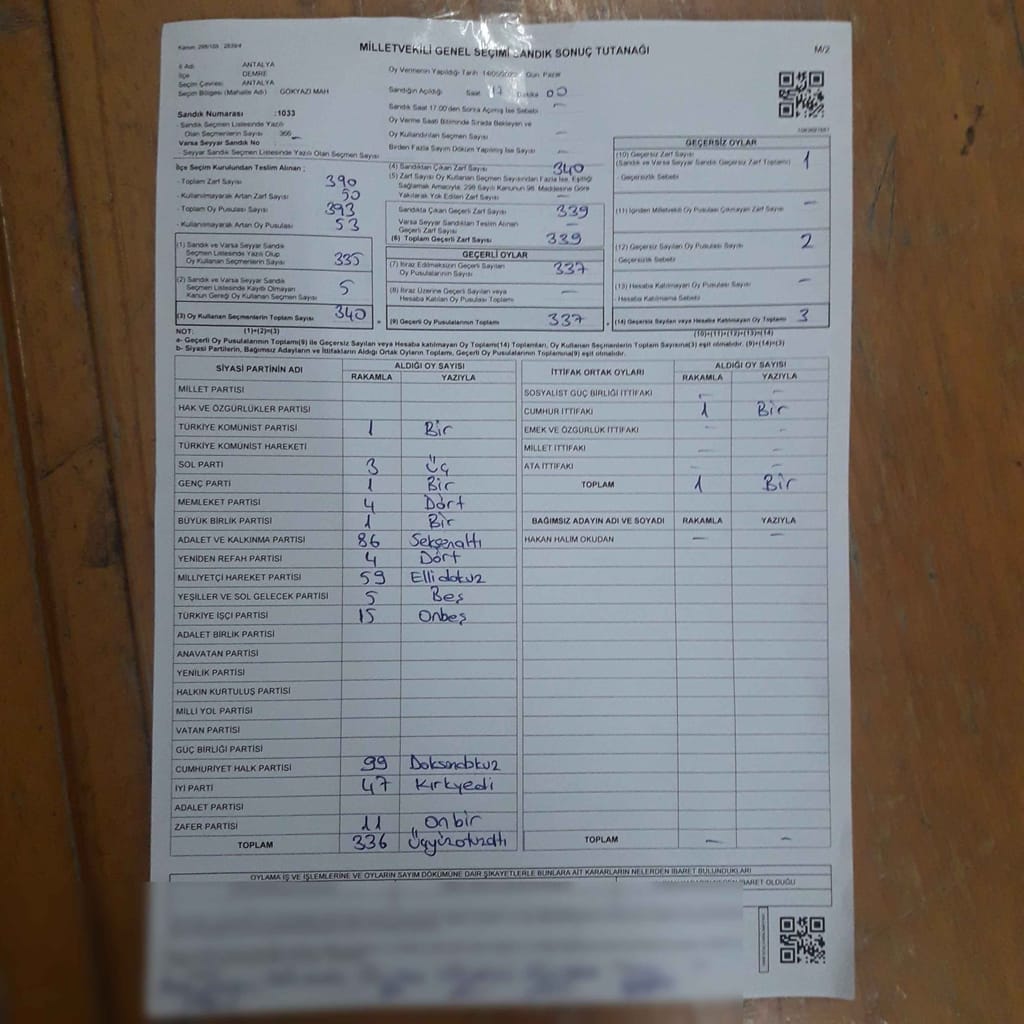 Kanun: 298/105 ; 2839/4
MİLLETVEKİLİ GENEL SEÇİMİ SANDIK SONUÇ TUTANAĞI
M/2
İl Adı ANTALYA
İlçe DEMRE
Seçim Çevresi ANTALYA
Seçim Bölgesi (Mahalle Adı) GÖKYAZI MAH
Oy Vermenin Yapıldığı Tarih Gün Pazar
Sandığın Açıldığı Saat 17 Dakika 00
Sandık Numarası :1033
- Sandık Seçmen Listesinde Yazılı
Olan Seçmenlerin Sayısı 366
Varsa Seyyar Sandık No
- Seyyar Sandık Seçmen Listesinde Yazılı Olan Seçmen Sayısı
Sandık Saat 17.00'den Sonra Açılmış İse Sebebi —
Oy Verme Saati Bitiminde Sırada Bekleyen ve
Oy Kullandırılan Seçmen Sayısı —
Birden Fazla Sayım Döküm Yapılmış İse Sayısı —
İlçe Seçim Kurulundan Teslim Alınan ;
- Toplam Zarf Sayısı 390
- Kullanılmayarak Artan Zarf Sayısı 50
- Toplam Oy Pusulası Sayısı 393
- Kullanılmayarak Artan Oy Pusulası 53
(1) Sandık ve Varsa Seyyar Sandık
Seçmen Listesinde Yazılı Olup
Oy Kullanan Seçmenlerin Sayısı 335
(2) Sandık ve Varsa Seyyar Sandık
Seçmen Listesinde Kayıtlı Olmayan
Kanun Gereği Oy Kullanan Seçmen Sayısı 5
(3) Oy Kullanan Seçmenlerin Toplam Sayısı 340
(4) Sandıktan Çıkan Zarf Sayısı 340
(5) Zarf Sayısı Oy Kullanan Seçmen Sayısından Fazla İse, Eşitliği
Sağlamak Amacıyla, 298 Sayılı Kanunun 98. Maddesine Göre
Yakılarak Yok Edilen Zarf Sayısı —
Sandıkta Çıkan Geçerli Zarf Sayısı 339
Varsa Seyyar Sandıktan Teslim Alınan
Geçerli Zarf Sayısı —
(6) Toplam Geçerli Zarf Sayısı 339
GEÇERLİ OYLAR
(7) İtiraz Edilmeksizin Geçerli Sayılan
Oy Pusulalarının Sayısı 337
(8) İtiraz Üzerine Geçerli Sayılan veya
Hesaba Katılan Oy Pusulası Toplamı —
(9) Geçerli Oy Pusulalarının Toplamı 337
GEÇERSİZ OYLAR
(10) Geçersiz Zarf Sayısı 1
(Sandık ve Varsa Seyyar Sandık Geçersiz Zarf Toplamı)
- Geçersizlik Sebebi
(11) İçinden Milletvekili Oy Pusulası Çıkmayan Zarf Sayısı —
(12) Geçersiz Sayılan Oy Pusulası Sayısı 2
- Geçersizlik Sebebi
(13) Hesaba Katılmayan Oy Pusulası Sayısı —
- Hesaba Katılmama Sebebi
(14) Geçersiz Sayılan veya Hesaba Katılmayan Oy Toplamı 3
NOT: (1)+(2)=(3) (10)+(11)+(12)+(13)=(14)
a- Geçerli Oy Pusulalarının Toplamı(9) ile Geçersiz Sayılan veya Hesaba Katılmayan Oy Toplamı(14) Toplamları, Oy Kullanan Seçmenlerin Toplam Sayısına(3) eşit olmalıdır. (9)+(14)=(3)
b- Siyasi Partilerin, Bağımsız Adayların ve İttifakların Aldığı Ortak Oyların Toplamı, Geçerli Oy Pusulalarının Toplamına(9) eşit olmalıdır.
SİYASİ PARTİNİN ADI ALDIĞI OY SAYISI
RAKAMLA YAZIYLA
MİLLET PARTİSİ
HAK VE ÖZGÜRLÜKLER PARTİSİ
TÜRKİYE KOMÜNİST PARTİSİ 1 Bir
TÜRKİYE KOMÜNİST HAREKETİ
SOL PARTİ 3 Üç
GENÇ PARTİ 1 Bir
MEMLEKET PARTİSİ 4 Dört
BÜYÜK BİRLİK PARTİSİ 1 Bir
ADALET VE KALKINMA PARTİSİ 86 Seksenaltı
YENİDEN REFAH PARTİSİ 4 Dört
MİLLİYETÇİ HAREKET PARTİSİ 59 Ellidokuz
YEŞİLLER VE SOL GELECEK PARTİSİ 5 Beş
TÜRKİYE İŞÇİ PARTİSİ 15 Onbeş
ADALET BİRLİK PARTİSİ
ANAVATAN PARTİSİ
YENİLİK PARTİSİ
HALKIN KURTULUŞ PARTİSİ
MİLLİ YOL PARTİSİ
VATAN PARTİSİ
GÜÇ BİRLİĞİ PARTİSİ
CUMHURİYET HALK PARTİSİ 99 Doksandokuz
İYİ PARTİ 47 Kırkyedi
ADALET PARTİSİ
ZAFER PARTİSİ 11 Onbir
TOPLAM 336 Üçyüzotuzaltı
İTTİFAK ORTAK OYLARI ALDIĞI OY SAYISI
RAKAMLA YAZIYLA
SOSYALİST GÜÇ BİRLİĞİ İTTİFAKI — —
CUMHUR İTTİFAKI 1 Bir
EMEK VE ÖZGÜRLÜK İTTİFAKI — —
MİLLET İTTİFAKI — —
ATA İTTİFAKI — —
TOPLAM 1 Bir
BAĞIMSIZ ADAYIN ADI VE SOYADI RAKAMLA YAZIYLA
HAKAN HALİM OKUDAN — —
TOPLAM — —
OYLAMA İŞ VE İŞLEMLERİNE VE OYLARIN SAYIM DÖKÜMÜNE DAİR ŞİKAYETLERLE BUNLARA AİT KARARLARIN NELERDEN İBARET BULUNDUKLARI
İBARET OLDUĞU